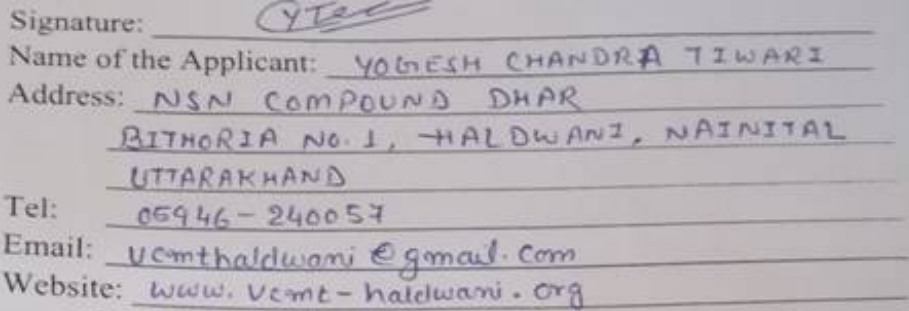 Signature:
Name of the Applicant: YOGESH CHANDRA TIWARI
Address: NSN COMPOUND DHAR
BITHORIA NO. 1, HALDWANI, NAINITAL
UTTARAKHAND
Tel: 05946-240057
Email: vcmthaldwani@gmail.com
Website: www.vcmt-haldwani.org